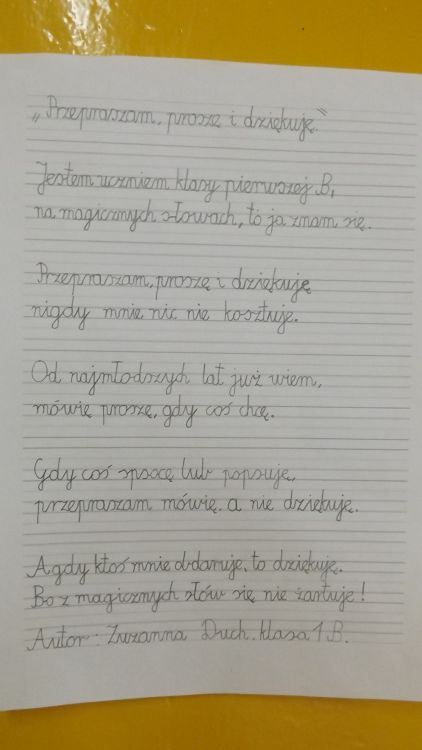 „Przepraszam, proszę i dziękuję."
Jestem uczniem klasy pierwszej B,
na magicznych słowach, to ja znam się.
Przepraszam, proszę i dziękuję
nigdy mnie nic nie kosztuje.
Od najmłodszych lat już wiem,
mówię proszę, gdy coś chcę.
Gdy coś spocę lub popsuję,
przepraszam mówię, a nie dziękuję.
A gdy ktoś mnie obdaruje, to dziękuję.
Bo z magicznych słów się nie żartuje!
Autor: Zuzanna Duch. klasa 1 B.